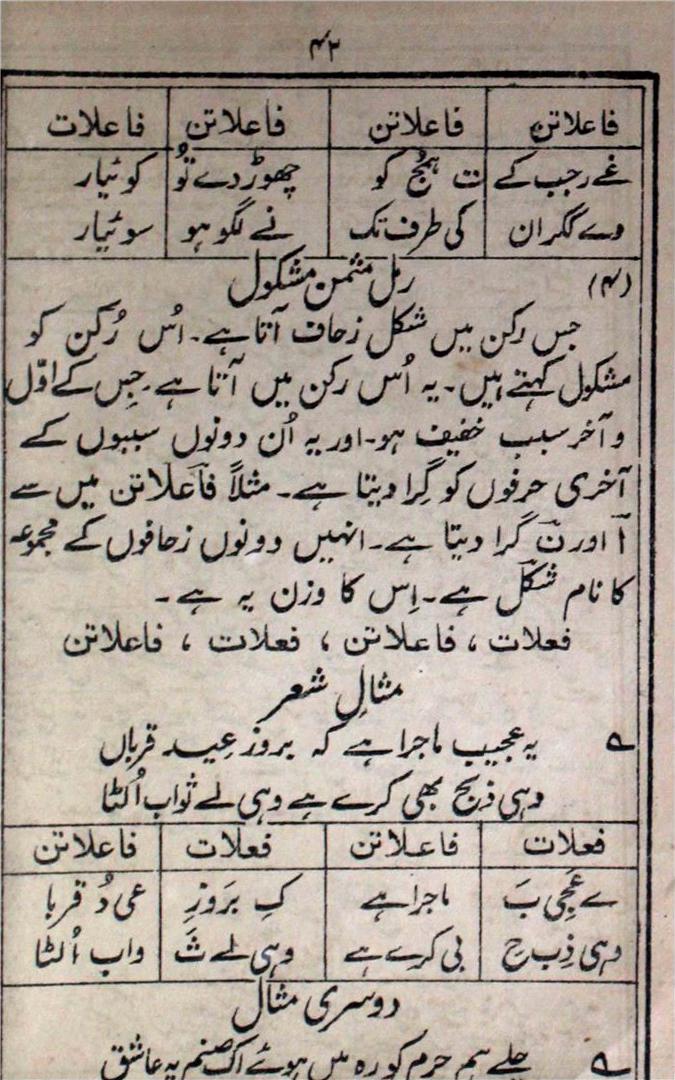 ۴۲
فاعلاتن فاعلاتن فاعلاتن فاعلات
غے رجب کے ت ہُج کو چھوڑ دے تُو کوئیار
وے گگران کی طرف تک نے لگو ہو سوئیار
(۴) رمل مثمن مشکول
جس رکن میں شکل زحاف آتا ہے۔ اُس رُکن کو
مشکول کہتے ہیں۔ یہ اُس رکن میں آتا ہے جِس کے اوّل
و آخر سبب خفیف ہو۔ اور یہ اُن دونوں سببوں کے
آخری حرفوں کو گِرا دیتا ہے۔ مثلاً فاعلاتن میں سے
آ اور ن گرا دیتا ہے۔ انہیں دونوں زحافوں کے مجموعہ
کا نام شکل ہے۔ اِس کا وزن یہ ہے۔
فعلات ، فاعلاتن ، فعلات ، فاعلاتن
مثالِ شعر
یہ عجیب ماجرا ہے کہ بروز عِید قرباں
وہی ذبح بھی کرے ہے وہی لے ثواب اُلٹا
فعلات فاعلاتن فعلات فاعلاتن
ے عَجِی بَ ماجرا ہے کِ بَروزِ عی دُ قربا
وہی ذِب ح بی کرے ہے وہی لے ثَ واب اُلٹا
دوسری مثال
چلے ہم حرم کو رہ میں ہوئے اک صنم پہ عاشق